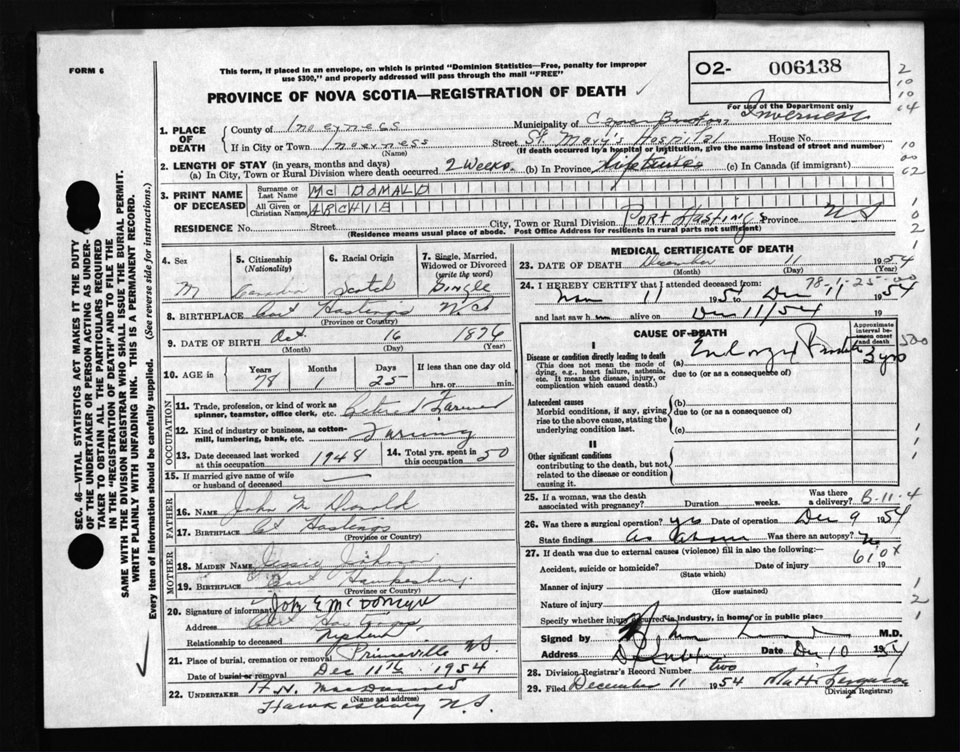 FORM 6
This form, if placed in an envelope, on which is printed "Dominion Statistics—Free, penalty for improper
use $300," and properly addressed will pass through the mail "FREE"
O2- 006138
2
10
10
64
PROVINCE OF NOVA SCOTIA—REGISTRATION OF DEATH
For use of the Department only
1. PLACE OF DEATH
County of Inverness Municipality of Cape Breton Inverness
If in City or Town Inverness Street St. Mary's Hospital House No.
(Name) (If death occurred in a hospital or institution, give the name instead of street and number)
10
00
62
2. LENGTH OF STAY (in years, months and days)
(a) In City, Town or Rural Division where death occurred 2 Weeks. (b) In Province Lifetime (c) In Canada (if immigrant)
3. PRINT NAME OF DECEASED
Surname or Last Name McDONALD
All Given or Christian Names ARCHIE
RESIDENCE No. Street City, Town or Rural Division Port Hastings Province N S
(Residence means usual place of abode. Post Office Address for residents in rural parts not sufficient)
1
0
2
4. Sex M
5. Citizenship (Nationality)
6. Racial Origin Scotch
7. Single, Married, Widowed or Divorced (write the word) Single
8. BIRTHPLACE Port Hastings N.S
(Province or Country)
9. DATE OF BIRTH Oct. 16 1876
(Month) (Day) (Year)
10. AGE in
Years 78 Months 1 Days 25
If less than one day
hrs. or min.
OCCUPATION
11. Trade, profession, or kind of work as spinner, teamster, office clerk, etc. Retired Farmer
12. Kind of industry or business, as cotton-mill, lumbering, bank, etc. Farming
13. Date deceased last worked at this occupation 1948
14. Total yrs. spent in this occupation 50
15. If married give name of wife or husband of deceased —
FATHER
16. Name John McDonald
17. Birthplace Pt Hastings
(Province or Country)
MOTHER
18. MAIDEN NAME Jessie
19. Birthplace Port Hawkesbury
(Province or Country)
20. Signature of informant John
Address Port Hastings
Relationship to deceased Nephew
21. Place of burial, cremation or removal Princeville N.S.
Date of burial or removal Dec 11th 1954
22. UNDERTAKER H.N.
(Name and address)
Hawkesbury N.S.
MEDICAL CERTIFICATE OF DEATH
23. DATE OF DEATH December 11 1954
(Month) (Day) (Year)
78-11-25-00
24. I HEREBY CERTIFY that I attended deceased from:
11 1954 to Dec 11 1954
and last saw h alive on Dec 11/54 19
CAUSE OF DEATH
Approximate interval between onset and death
I
Disease or condition directly leading to death
(This does not mean the mode of dying, e.g., heart failure, asthenia, etc. It means the disease, injury, or complication which caused death.)
(a) Enlarged Prostate 3 yrs
due to (or as a consequence of)
Antecedent causes
Morbid conditions, if any, giving rise to the above cause, stating the underlying condition last.
(b)
due to (or as a consequence of)
(c)
II
Other significant conditions
contributing to the death, but not related to the disease or condition causing it.
25. If a woman, was the death associated with pregnancy? Duration weeks. Was there a delivery? B-11-4
26. Was there a surgical operation? yes Date of operation Dec 9 1954
State findings as above Was there an autopsy? No
27. If death was due to external causes (violence) fill in also the following:— 610X
Accident, suicide or homicide? Date of injury 19
(State which)
Manner of injury
(How sustained)
Nature of injury
Specify whether injury occurred in industry, in home, or in public place
Signed by M.D.
Address Date Dec 10 1954
28. Division Registrar's Record Number two
29. Filed December 11 1954 Matt Ferguson
(Division Registrar)
SEC. 46—VITAL STATISTICS ACT MAKES IT THE DUTY
OF THE UNDERTAKER OR PERSON ACTING AS UNDER-
TAKER TO OBTAIN ALL THE PARTICULARS REQUIRED
IN THE "REGISTRATION OF DEATH" AND TO FILE THE
SAME WITH THE DIVISION REGISTRAR WHO SHALL ISSUE THE BURIAL PERMIT.
WRITE PLAINLY WITH UNFADING INK. THIS IS A PERMANENT RECORD.
Every item of information should be carefully supplied. (See reverse side for instructions.)